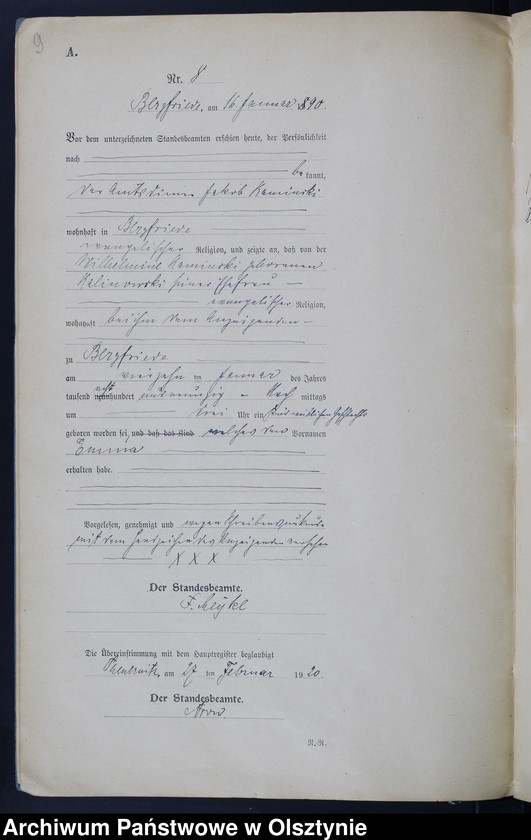 9
A.
Nr. 8
Bergfriede, am 16 Januar 1890.
Vor dem unterzeichneten Standesbeamten erschien heute, der Persönlichkeit
nach
bekannt,
der Amtsdiener Jakob Kaminski
wohnhaft in Bergfriede
evangelischer Religion, und zeigte an, daß von der
Wilhelmine Kaminski geborenen
Kalinowski seiner Ehefrau
evangelischer Religion,
wohnhaft bei ihm dem Anzeigenden
zu Bergfriede
am vierzehn ten Januar des Jahres
tausend acht hundert und neunzig Nach mittags
um drei Uhr ein Kind weiblichen Geschlechts
geboren worden sei, und daß das Kind welches den Vornamen
Emma
erhalten habe.
Vorgelesen, genehmigt und wegen Schreibensunkunde
mit dem Handzeichen des Anzeigenden versehen
X X X
Der Standesbeamte.
Die Übereinstimmung mit dem Hauptregister beglaubigt
am 27 ten Februar 1920.
Der Standesbeamte.
N.-R.
Archiwum Państwowe w Olsztynie